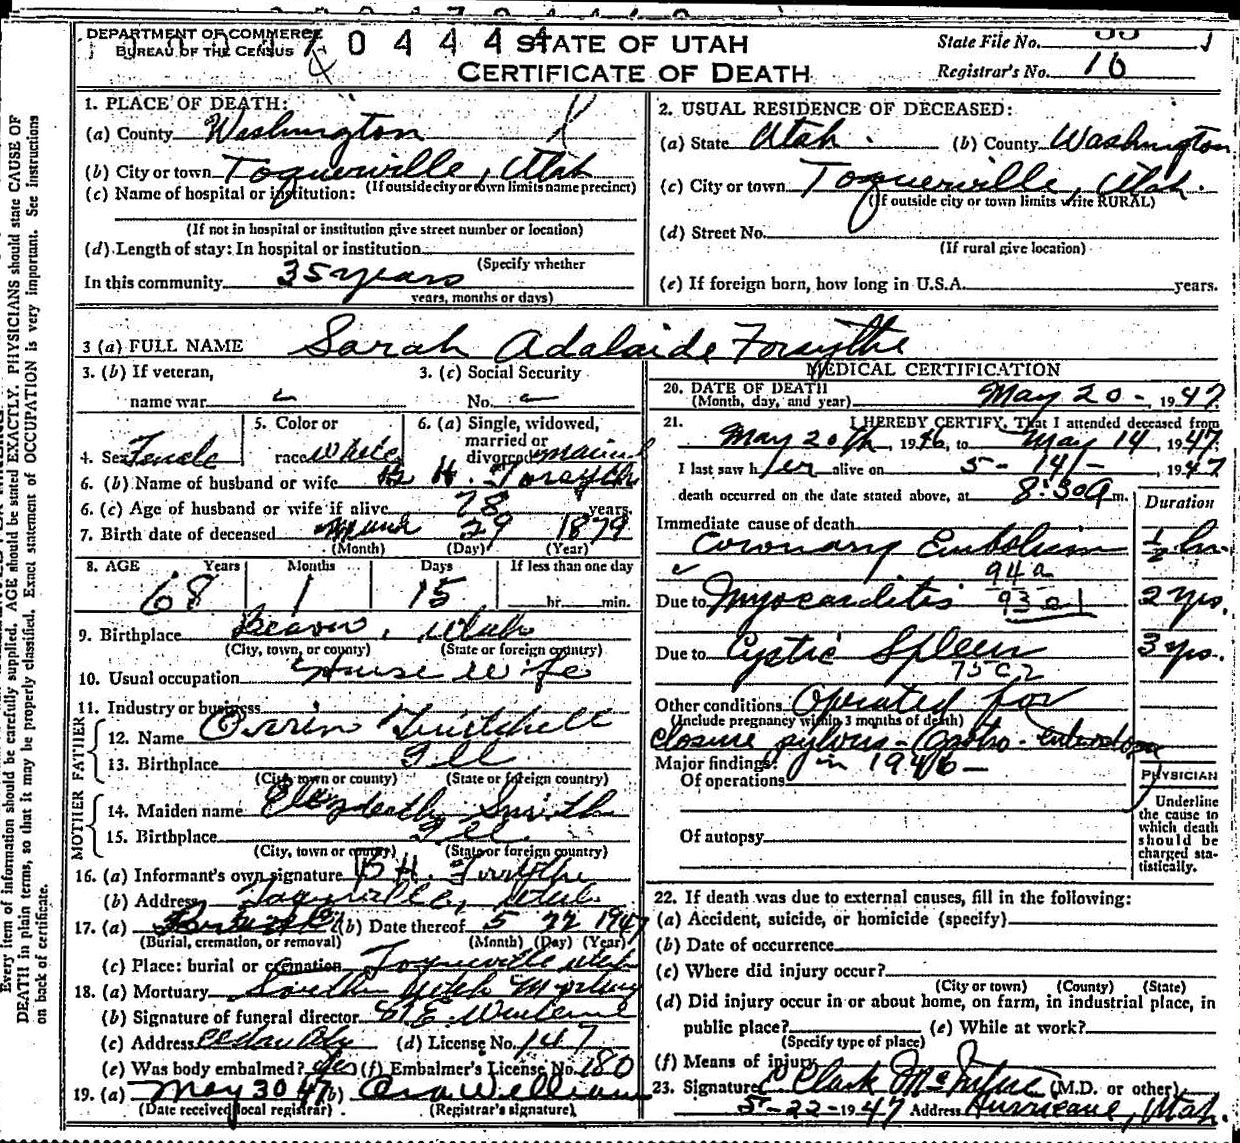 DEPARTMENT OF COMMERCE
BUREAU OF THE CENSUS
0 4 4 4 4
STATE OF UTAH
CERTIFICATE OF DEATH
State File No.
Registrar's No. 16
1. PLACE OF DEATH:
(a) County Washington
(b) City or town Toquerville, Utah
(If outside city or town limits name precinct)
(c) Name of hospital or institution:
(If not in hospital or institution give street number or location)
(d) Length of stay: In hospital or institution
(Specify whether
In this community 35 years
years, months or days)
2. USUAL RESIDENCE OF DECEASED:
(a) State Utah. (b) County Washington
(c) City or town Toquerville, Utah.
(If outside city or town limits write RURAL)
(d) Street No.
(If rural give location)
(e) If foreign born, how long in U.S.A. years.
3 (a) FULL NAME Sarah Adalaide Forsythe
3. (b) If veteran,
name war
3. (c) Social Security
No.
4. Sex Female
5. Color or
race White
6. (a) Single, widowed,
married or
divorced married
6. (b) Name of husband or wife H. Forsythe
6. (c) Age of husband or wife if alive 78 years.
7. Birth date of deceased 29 1879
(Month) (Day) (Year)
8. AGE Years Months Days If less than one day
68 1 15 hr. min.
9. Birthplace Beaver, Utah
(City, town, or county) (State or foreign country)
10. Usual occupation House Wife
11. Industry or business
FATHER
12. Name Orrin Twitchell
13. Birthplace Ill
(City, town or county) (State or foreign country)
MOTHER
14. Maiden name Elizabeth Smith
15. Birthplace Ill
(City, town or county) (State or foreign country)
16. (a) Informant's own signature B H. Forsythe
(b) Address Toquerville, Utah
17. (a) (b) Date thereof 5 22 1947
(Burial, cremation, or removal) (Month) (Day) (Year)
(c) Place: burial or cremation Toquerville Utah
18. (a) Mortuary Southern Utah Mortuary
(b) Signature of funeral director
(c) Address Cedar City (d) License No. 147
(e) Was body embalmed? yes (f) Embalmer's License No. 180
19. (a) May 30 47 (b) Williams
(Date received local registrar) (Registrar's signature)
MEDICAL CERTIFICATION
20. DATE OF DEATH
(Month, day, and year) May 20 - , 1947
21. I HEREBY CERTIFY, That I attended deceased from
May 20th, 1946, to May 14, 1947.
I last saw her alive on 5 - 14 - , 1947
death occurred on the date stated above, at 8:30 a m.
Duration
Immediate cause of death
Coronary Embolism 1/2 hr.
94a
Due to Myocarditis 93d1 2 yrs.
Due to Cystic Spleen 3 yrs.
75c2
Other conditions Operated for
(Include pregnancy within 3 months of death)
closure pylorus - Gastro-
Major findings: in 1946 -
Of operations
Of autopsy
PHYSICIAN
Underline
the cause to
which death
should be
charged sta-
tistically.
22. If death was due to external causes, fill in the following:
(a) Accident, suicide, or homicide (specify)
(b) Date of occurrence
(c) Where did injury occur?
(City or town) (County) (State)
(d) Did injury occur in or about home, on farm, in industrial place, in
public place? (e) While at work?
(Specify type of place)
(f) Means of injury
23. Signature Clark McIntire (M.D. or other)
5-22-1947 Address Hurricane, Utah.
Every item of information should be carefully supplied. AGE should be stated EXACTLY. PHYSICIANS should state CAUSE OF
DEATH in plain terms, so that it may be properly classified. Exact statement of OCCUPATION is very important. See instructions
on back of certificate.